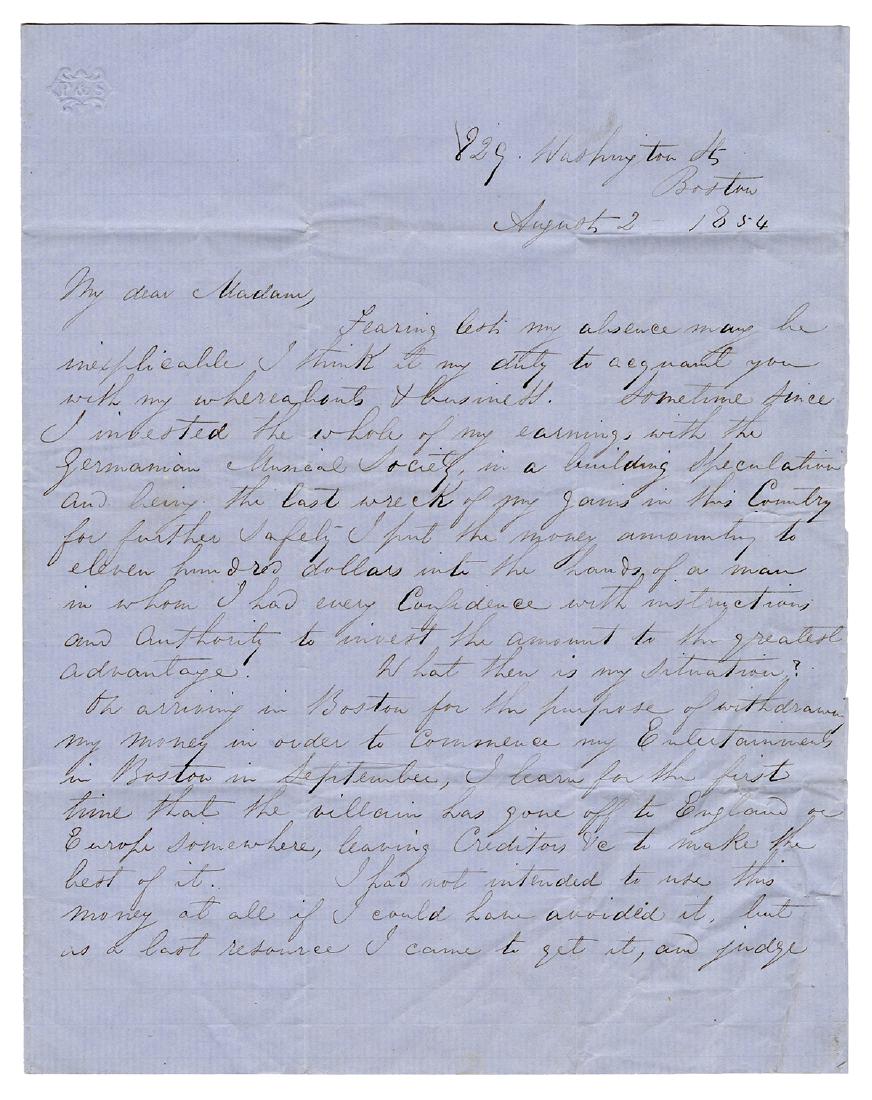 P & S
829. Washington St
Boston
August 2 - 1854
My dear Madam,
Fearing lest my absence may be
inexplicable I think it my duty to acquaint you
with my whereabouts & business. Sometime since
I invested the whole of my earnings with the
Germanian Musical Society, in a building speculation
and being the last wreck of my gains in this Country
for further safety I put the money amounting to
eleven hundred dollars into the hands of a man
in whom I had every Confidence with instructions
and authority to invest the amount to the greatest
advantage. What then is my situation?
On arriving in Boston for the purpose of withdrawing
my money in order to Commence my Entertainments
in Boston in September, I learn for the first
time that the villain has gone off to England or
Europe somewhere, leaving Creditors &c to make the
best of it. I had not intended to use this
money at all if I could have avoided it, but
as a last resource I came to get it, and judge